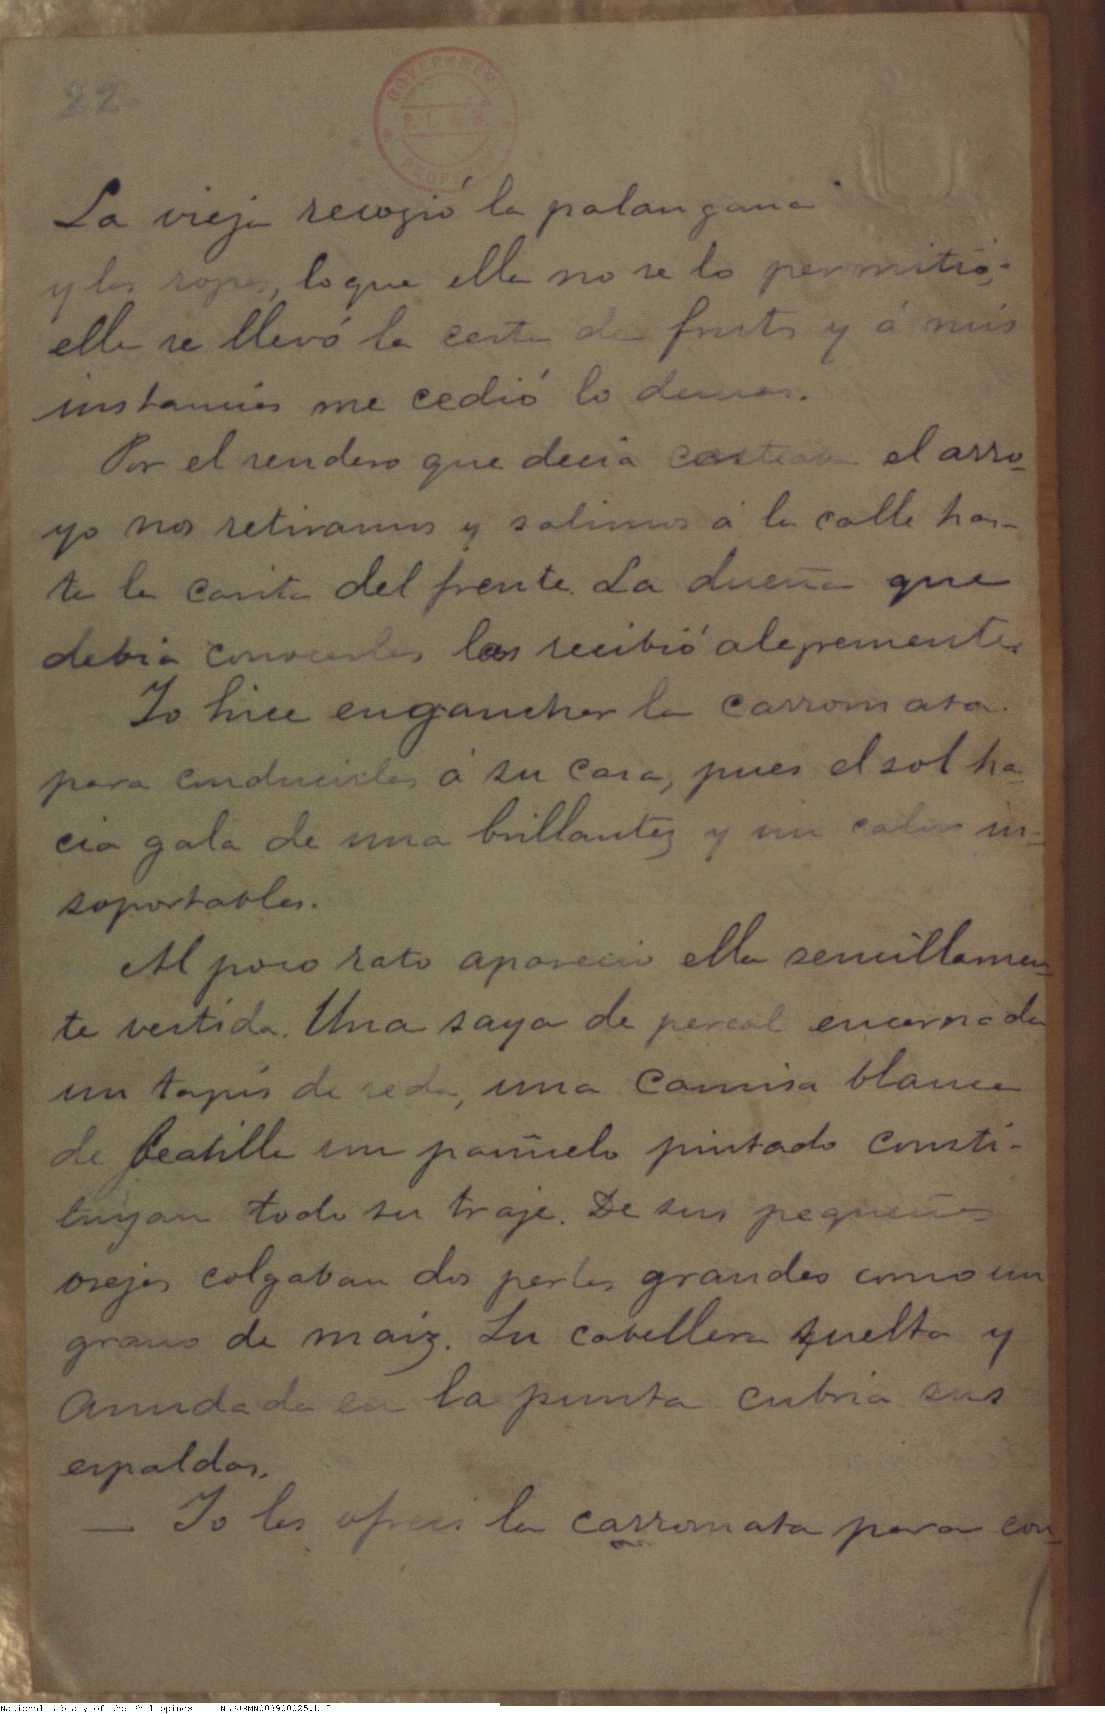 22
GOVERNMEN
P.I.
PROPERTY
La vieja recogió la palangana
y las ropas, lo que ella no se lo permitió;
ella se llevó la cesta de fruta y á mis
instancias me cedió lo demas.
Por el sendero que decia costeaba el arro-
yo nos retiramos y salimos á la calle has-
ta la casita del frente. La dueña que
debia conocerlas las recibió alegremente.
Yo hice enganchar la carromata
para conducirlas á su casa, pues el sol ha-
cia gala de una brillantez y un calor in-
soportables.
Al poco rato apareció ella sencillamen-
te vestida. Una saya de percal encarnada
un tapis de seda, una camisa blanca
de beatilla un pañuelo pintado consti-
tuyan todo su traje. De sus pequeñas
orejas colgaban dos perlas grandes como un
grano de maiz. Su cabellera suelta y
anudada en la punta cubria sus
espaldas.
— Yo les ofreci la carromata para con-
National Library of the Philippines